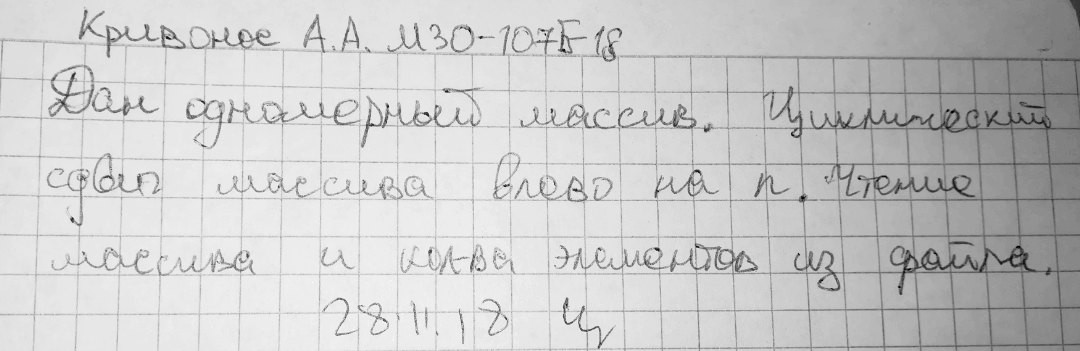 Кривонос А.А. М30-107Б-18
Дан одномерный массив. Циклический
сдвиг массива влево на n. Чтение
массива и кол-ва элементов из файла.
28.11.18